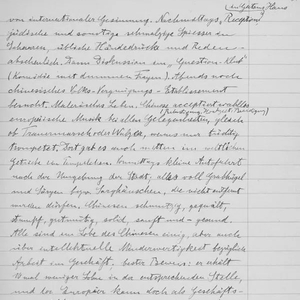 von internationaler Gesinnung. Nachmittags Reception
jüdische und sonstige ehemalige Spiesser in
Scharen, übliche Händedrücke und Reden -
abscheulich. Dann Diskussion im „Question-Klub"
(Komödie mit dummen Fragen). Abends noch
chinesisches Volks-Vergnügungs-Etablissement
besucht. Malerisches Leben.
europäische Musik bei allen Gelegenheiten, gleich
ob Trauermarsch oder Walzer, wenns nur tüchtig
trompetet. Dort gab es noch mitten im weltlichen
Getriebe ein Tempelchen. Vormittags kleine Autofahrt
nach der Umgebung der Stadt, alles voll Grabhügel
und Särgen bezw. Sarghäuschen, die nicht entfernt
werden dürfen. Chinesen schmutzig, gequält,
stumpf, gutmütig, solid, sanft und - gesund.
Alle sind im Lobe des Chinesen einig, aber auch
über intellektuelle Minderwertigkeit bezüglich
Arbeit im Geschäft, bester Beweis: er erhält
10 mal weniger Lohn in der entsprechenden Stelle,
und der Europäer kann doch als Geschäfts-